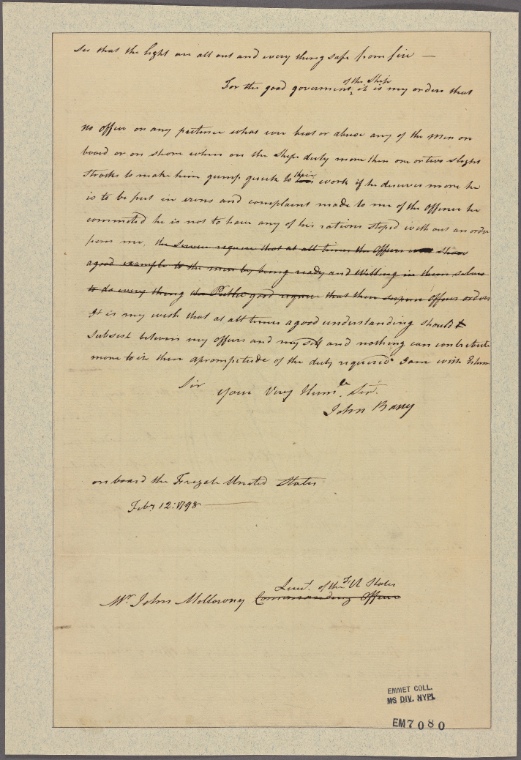 see that the light are all out and every thing safe from fire —
of the Ship
For the good goverment, it is my orders that
no officer on any pretence what ever beat or abuse any of the men on
board or on shore when on the Ships duty more then one or two slight
Stroks to make him jump quick to their work if he deserves more he
is to be put in irons and complaint made to me of the offence he
commited he is not to have any of his rations stoped with out an order
from me, the requier that at all times the officers
a good example to the men by being ready and Willing in them selves
to do every thing the Public good requier that their Officer orders
It is my wish that at all times a good understanding should
Subsist between my officers and my self and nothing can contribute
more to it then a promptitude of the duty required I am with Esteem
Sir
Your Very Hume. Sert.
John Barry
on board the Frigate United States
Feby 12: 1798
Lieut. of the F. U States
Mr. John Mullowny Commanding Officer
EMMET COLL.
MS. DIV. NYPL
EM7080